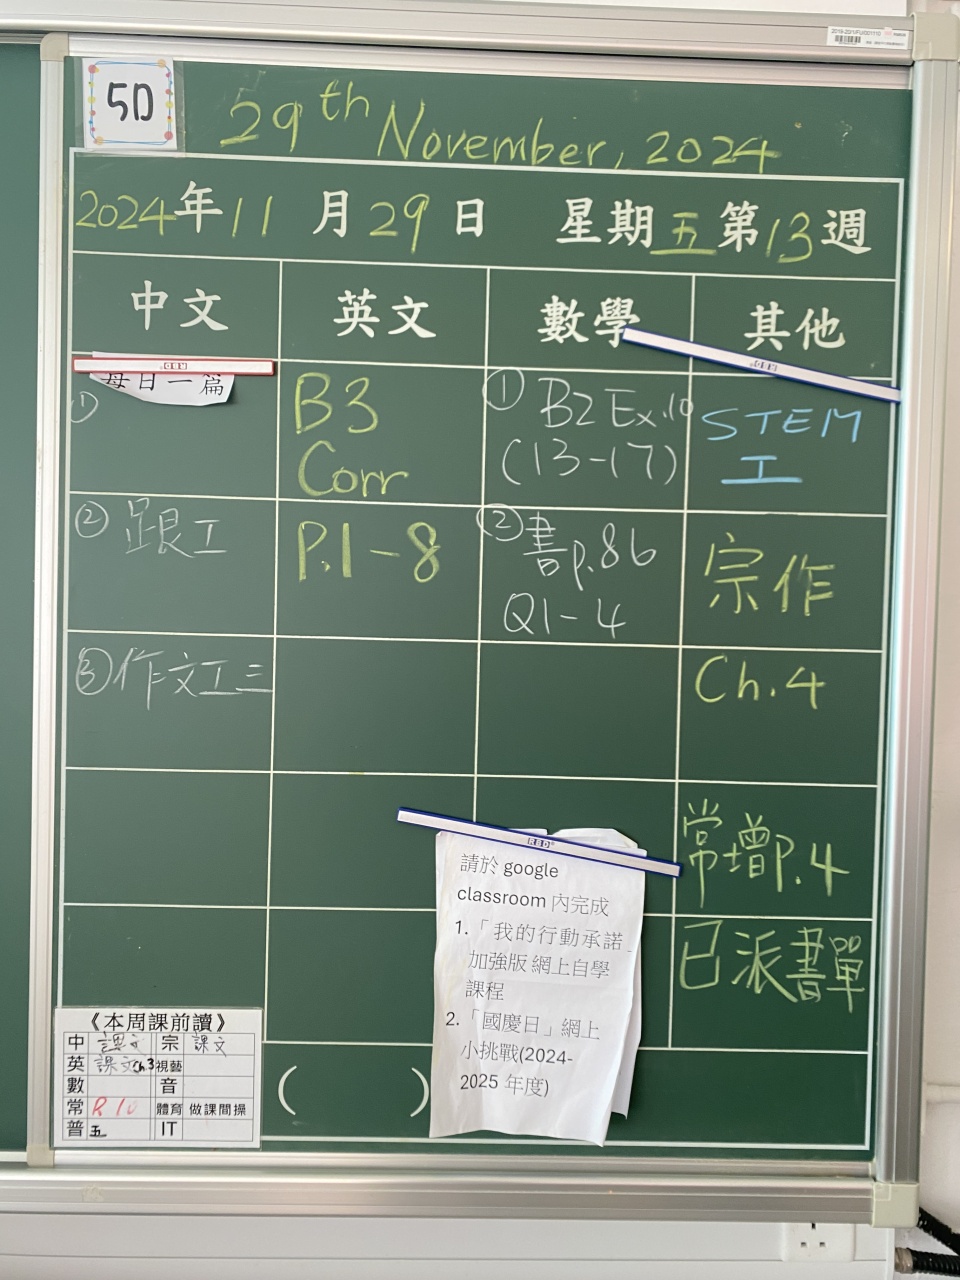 5D
29th November, 2024
2024年11月29日 星期五第13週
中文 英文 數學 其他
每日一篇
①
② 跟工
③作文工三
B3
Corr
P.1-8
① B2 Ex.10
(13-17)
② 書p.86
Q1-4
STEM
工
宗作
Ch.4
常增P.4
已派書單
RBD
請於 google
classroom 內完成
1.「我的行動承諾」
加強版 網上自學
課程
2.「國慶日」網上
小挑戰(2024-
2025 年度)
( )
《本周課前讀》
中 課文 宗 課文
英 課文 ch3 視藝
數 音
常 P.10 體育 做課間操
普 五 IT